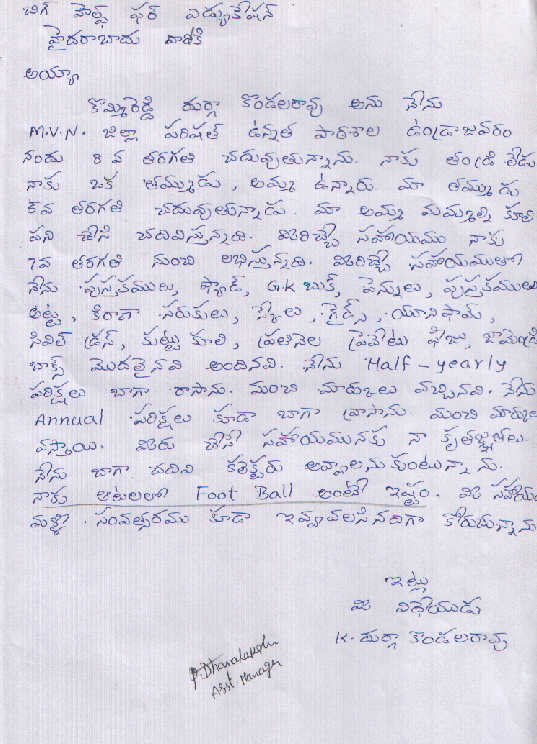 బిగ్ హెల్ప్ ఫర్ ఎడ్యుకేషన్
హైదరాబాదు వారికి
అయ్యా
కొమ్మిరెడ్డి దుర్గా కొండలరావు అను నేను
M.V.N. జిల్లా పరిషత్ ఉన్నత పాఠశాల ఉండ్రాజవరం
నందు 8 వ తరగతి చదువుతున్నాను. నాకు తండ్రి లేడు
నాకు ఒక తమ్ముడు, అమ్మ ఉన్నారు. మా తమ్ముడు
6వ తరగతి చదువుతున్నాడు. మా అమ్మ మమ్మల్ని కూలి
పని చేసి చదివిస్తున్నది. మీరిచ్చే సహాయము నాకు
7వ తరగతి నుంచి లభిస్తున్నది. మీరిచ్చే సహాయములో
నేను పుస్తకములు, ప్యాడ్, G.K బుక్, పెన్నులు, పుస్తకములు
అట్ట, కిరాణా సరుకులు, స్కేలు, గైడ్స్, యూనిఫామ్,
సివిల్ డ్రస్, కుట్టు కూలి, ప్రతినెల ప్రైవేటు ఫీజు, జామెంట్రి
బాక్స్ మొదలైనవి అందినవి. నేను Half-yearly
పరిక్షలు బాగా రాసాను. మంచి మార్కులు వచ్చినవి. నేను
Annual పరిక్షలు కూడా బాగా వ్రాసాను మంచి మార్కులు
వస్తాయి. మీరు చేసే సహాయమునకు నా కృతజ్ఞతలు.
నేను బాగా చదివి కలెక్టరు అవ్వాలనుకుంటున్నాను.
నాకు ఆటలలో Foot Ball అంటే ఇష్టం. మీ సహాయం
మళ్లీ సంవత్సరము కూడా ఇవ్వవలసినదిగా కోరుచున్నాను
ఇట్లు
మీ విధేయుడు
K. దుర్గా కొండలరావు
Asst Manager